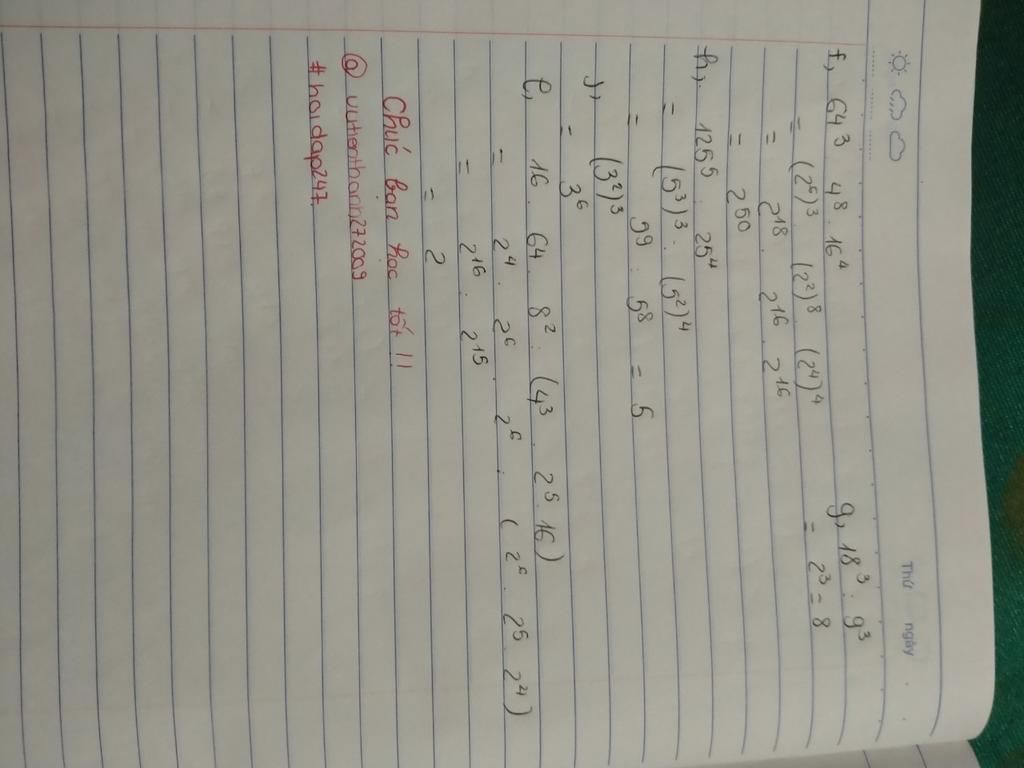 Thứ ngày
f, 64³ 4⁸ . 16⁴
= (2⁶)³ (2²)⁸ . (2⁴)⁴
= 2¹⁸ . 2¹⁶ . 2¹⁶
= 2⁵⁰
g, 18³ : 9³
= 2³ = 8
h, 125⁵ : 25⁴
= (5³)³ : (5²)⁴
= 5⁹ : 5⁸ = 5
j, (3²)³
= 3⁶
l, 16 . 64 . 8² : (4³ . 2⁵ . 16)
= 2⁴ . 2⁶ . 2⁶ : (2⁶ . 2⁵ . 2⁴)
= 2¹⁶ : 2¹⁵
= 2
Chúc bạn học tốt !!
@ vutienthanh272009
# hoidap247